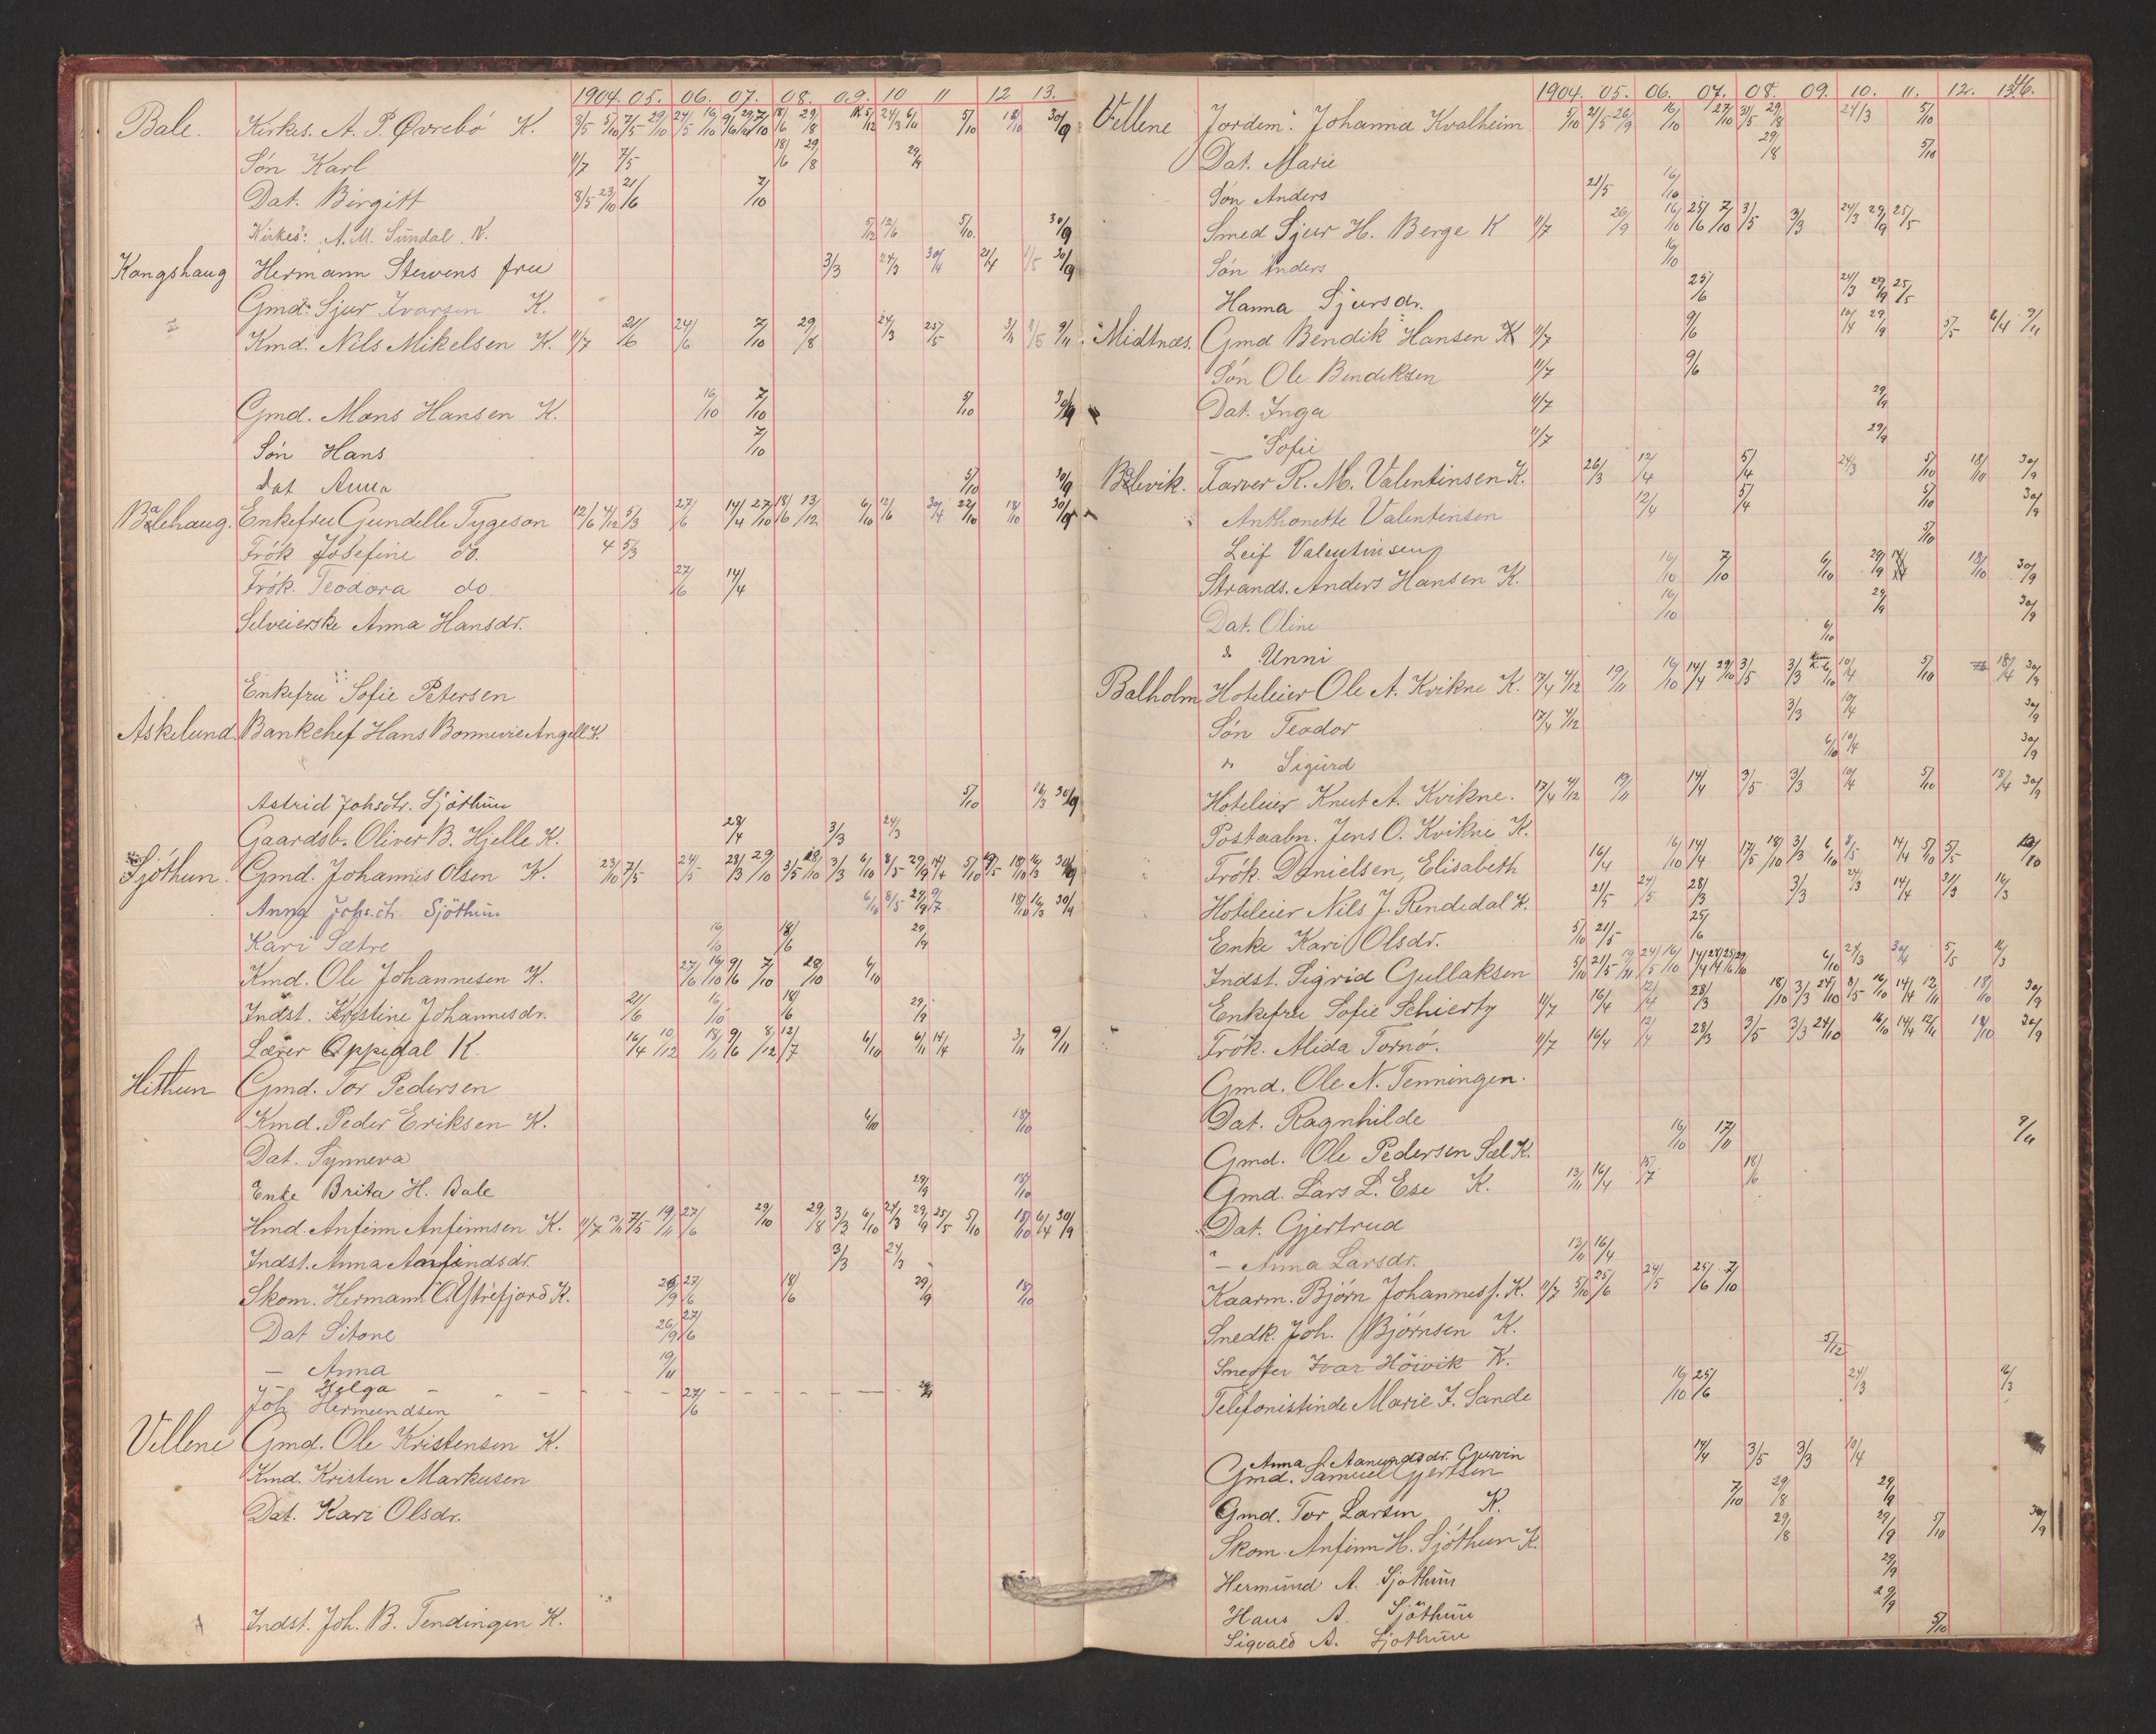 1904. 05. 06. 07. 08. 09. 10 11 12 13.
Bale. Kirkes. A. P. Øvrebö K. 8/5 5/10 7/5 29/10 24/5 16/10 9/6 29/10 7/10 18/6 29/8 5/12 24/3 5/10 18/10 30/9
Søn Karl 11/7 7/5 18/6 29/8 29/9
Dat. Birgitt 8/5 23/10 21/6 7/10
Kirkes: A. M. Sündal. K. 5/12 12/6 5/10. 30/9
Kongshaug Hermann Stewens fru 3/3 24/3 30/4 21/4 1/5 30/9
Gmd: Sjur Ivarsen K.
Kmd. Nils Mikelsen K. 11/7 21/6 24/6 7/10 29/8 24/3 25/5 3/11 1/5 9/11
Gmd. Mons Hansen K. 16/10 7/10 5/10 30/9
Søn Hans 7/10
dat Anna 5/10 30/9
Balehaug. Enkefru Gundelle Tygeson 12/6 4/12 5/3 27/6 14/4 27/10 18/6 13/12 6/10 12/6 30/4 22/10 18/10 30/9
Frök Josefine do. 4 5/3
Frök. Teodora do 27/6 14/4
Selveierske Anna Hansdr.
Enkefru Sofie Petersen
Askelund. Bankchef Hans Bonnevie Angell K.
Astrid Johsdtr. Sjöthün 5/10 16/3 30/9
Gaardsb. Oliver B. Hjelle K. 28/4 3/3 24/3
Sjöthun. Gmd. Johannes Olsen K. 23/10 7/5 24/5 28/3 29/10 3/5 18/10 3/3 6/10 8/5 29/9 14/4 5/10 19/5 18/10 16/3 30/9
Anna Johs.dtr. Sjöthün 6/10 8/5 29/9 9/7 18/10 16/3 30/9
Kari Sætre 16/10 18/6 29/9
Kmd. Ole Johannesen K. 27/6 16/10 9/6 7/10 28/10 6/10
Indst. Kristine Johannesdr. 21/6 16/10 18/6 29/9
Lærer Oppedal K. 16/4 10/12 18/11 9/6 8/12 12/7 6/10 6/11 14/4 3/11 9/11
Hithun Gmd. Tor Pedersen
Kmd. Peder Eriksen K. 6/10 18/10
Dat. Synneva
Enke Brita H. Bale 29/9 18/10
Hmd. Anfinn Anfinnsen K. 11/7 13/11 7/5 19/11 27/6 29/10 29/8 3/3 6/10 24/3 29/9 25/5 5/10 18/10 6/4 30/9
Indst. Anna Aanfindsdr. 3/3 24/3
Skom. Hermann O. Ystrefjord K. 26/9 27/6 18/6 29/9 18/10
Dat Sitone 26/9 27/6
— Anna 19/11
— Helga - - - - - - - - - 29/9
Joh Hermundsen 27/6
Vellene Gmd. Ole Kristensen K.
Kmd. Kristen Markusen
Dat. Kari Olsdr.
Indst. Joh. B. Tendingen K.
1904. 05. 06. 07. 08. 09. 10. 11. 12. 13. 46.
Vellene Jordem. Johanna Kvalheim 5/10 21/5 26/9 16/10 27/10 31/5 29/8 24/3 5/10
Dat. Marie 29/8 5/10
Søn Anders 21/5 16/10
Smed Sjur H. Berge K 11/7 26/9 16/10 25/6 7/10 3/5 3/3 24/3 29/9 25/5
Søn Anders 16/10
Hanna Sjursdr. 25/6 24/3 29/9 25/5
Midtnæs. Gmd Bendik Hansen K 11/7 9/6 10/4 29/9 5/5 6/4 9/11
Søn Ole Bendiksen 11/7 9/6
Dat. Inga 11/7 29/9
— Sofie 11/7 29/9
Balevik. Farver R. M. Valentinsen K. 26/3 12/4 5/4 24/3 5/10 18/10 30/9
Anthonette Valentinsen 12/4 5/4 5/10 30/9
Leif Valentinsen 5/10
Strands. Anders Hansen K. 16/10 7/10 6/10 29/9 18/10 30/9
Dat. Oline 16/10 29/9 30/9
do Unni 6/10
Balholm Hoteleier Ole A. Kvikne K. 17/4 4/12 19/11 16/10 14/4 29/10 3/5 3/3 6/10 10/4 5/10 18/4 30/9
Søn Teodor 17/4 4/12 3/3 10/4 30/9
" Sigurd 6/10 10/4 30/9
Hoteleier Knut A. Kvikne. 17/4 4/12 19/11 14/4 3/5 3/3 10/4 5/10 18/4 30/9
Postaabn. Jens O. Kvikne K.
Frök. Danielsen, Elisabeth 16/4 16/10 14/4 17/5 18/10 3/3 6/10 8/5 14/4 5/10 5/5
Hoteleier Nils J. Rendedal K. 21/5 24/5 28/3 3/3 24/3 14/4 31/3 16/3
Enke Kari Olsdr. 5/10 21/5 25/6
Indst. Sigrid Gullaksen 5/10 21/5 19/11 24/5 16/10 14/4 28/4 25/6 29/10 6/10 24/3 30/4 5/5 16/3
Enkefru Sofie Schiertz 11/7 16/4 12/4 28/3 18/10 3/3 24/10 8/5 16/10 14/4 12/11 18/10 30/9
Frök. Alida Tornö. 11/7 16/4 12/4 28/3 3/5 3/3 24/10 16/10 14/4 12/11 18/10 30/9
Gmd. Ole N. Tenningen.
Dat. Ragnhilde
Gmd. Ole Pedersen Sæl K. 16/10 17/11 9/11
Gmd. Lars L. Ese K. 13/11 16/4 15/7 18/6
Dat. Gjertrud
" — Anna Larsdr. 13/11 16/4
Kaarm. Björn Johannesf. K. 11/7 5/10 25/6 24/5 25/6 7/10
Snedk. Joh. Björnsen K.
Ivar Höivik K. 5/12
Telefonistinde Marie J. Sande 16/10 25/6 24/3 16/3
Anna Aanundsdr. Gjurvin 14/4 3/5 3/3 10/4
Gmd. Samuel Gjertsen
Gmd. Tor Larsen K. 7/10 29/8 29/9
Skom. Anfinn H. Sjöthun K. 29/8 29/9 5/10 30/9
Hermund A. Sjöthün 29/9
Hans A. Sjöthün 29/9
Sigvald A. Sjöthün 5/10